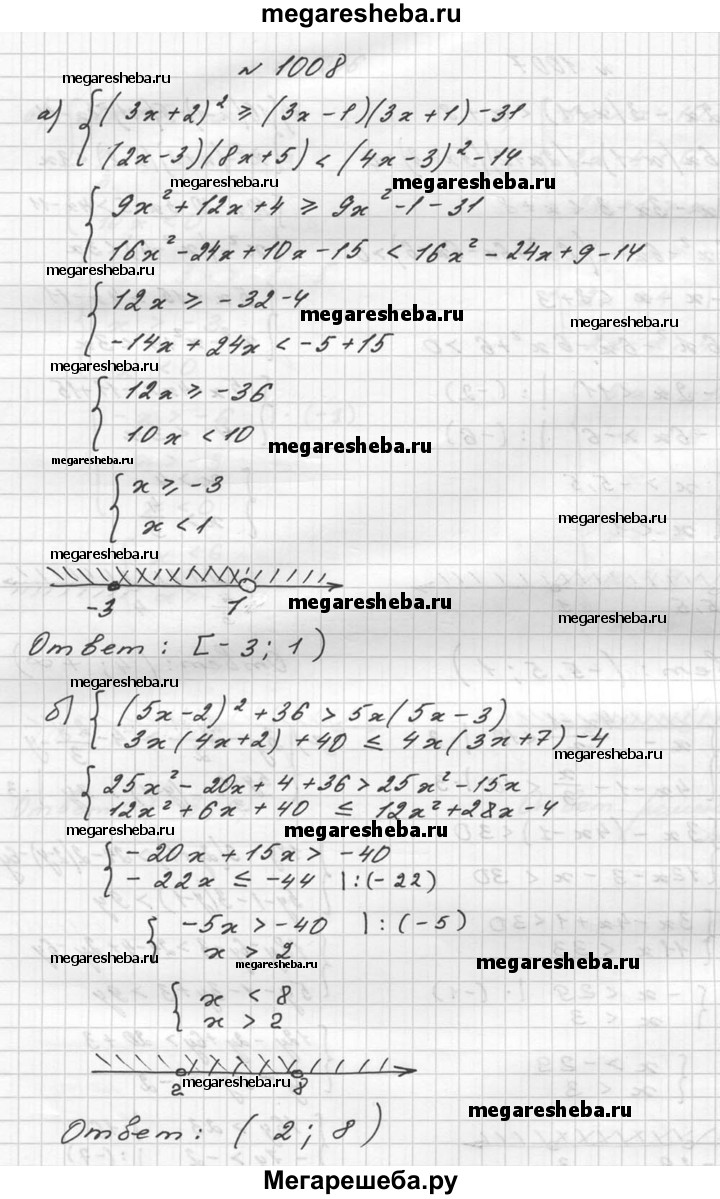 megaresheba.ru
№ 1008
megaresheba.ru
а) { (3x+2)² ⩾ (3x-1)(3x+1)-31
(2x-3)(8x+5) < (4x-3)²-14
megaresheba.ru megaresheba.ru
{ 9x²+12x+4 ⩾ 9x²-1-31
16x²-24x+10x-15 < 16x²-24x+9-14
megaresheba.ru
{ 12x ⩾ -32-4
megaresheba.ru megaresheba.ru
-14x+24x < -5+15
megaresheba.ru
{ 12x ⩾ -36
10x < 10
megaresheba.ru
megaresheba.ru
{ x ⩾ -3
megaresheba.ru
x < 1
megaresheba.ru
-3 1
megaresheba.ru
Ответ: [-3; 1)
megaresheba.ru
б) { (5x-2)²+36 > 5x(5x-3)
3x(4x+2)+40 ≤ 4x(3x+7)-4
megaresheba.ru
{ 25x²-20x+4+36 > 25x²-15x
12x²+6x+40 ≤ 12x²+28x-4
megaresheba.ru megaresheba.ru
{ -20x+15x > -40
-22x ≤ -44 |:(-22)
{ -5x > -40 |:(-5)
x > 2
megaresheba.ru megaresheba.ru megaresheba.ru
{ x < 8
x > 2
2 8
megaresheba.ru
megaresheba.ru
Ответ: (2; 8)
Мегарешеба.ру